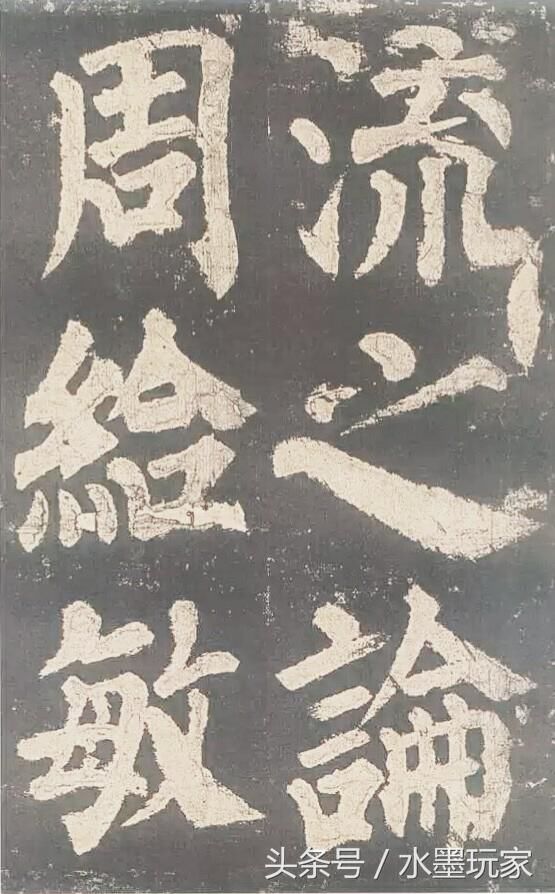 流之論
周給敏
头条号 / 水墨玩家